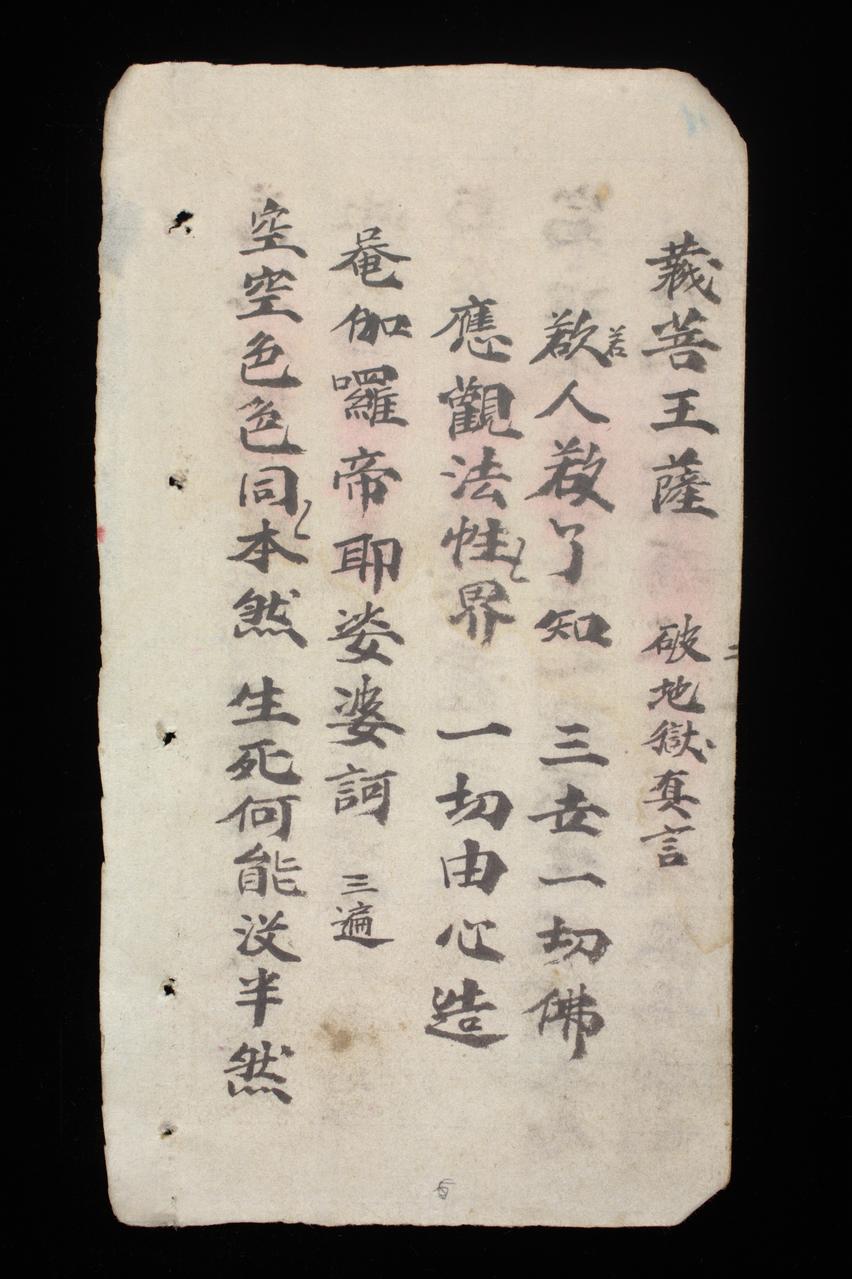 藏菩王薩 破地獄真言
二
欲若人欲了知 三世一切佛
應觀法性界 一切由心造
唵伽囉帝耶娑婆訶 三遍
空空色色同本然 生死何能没半然
5